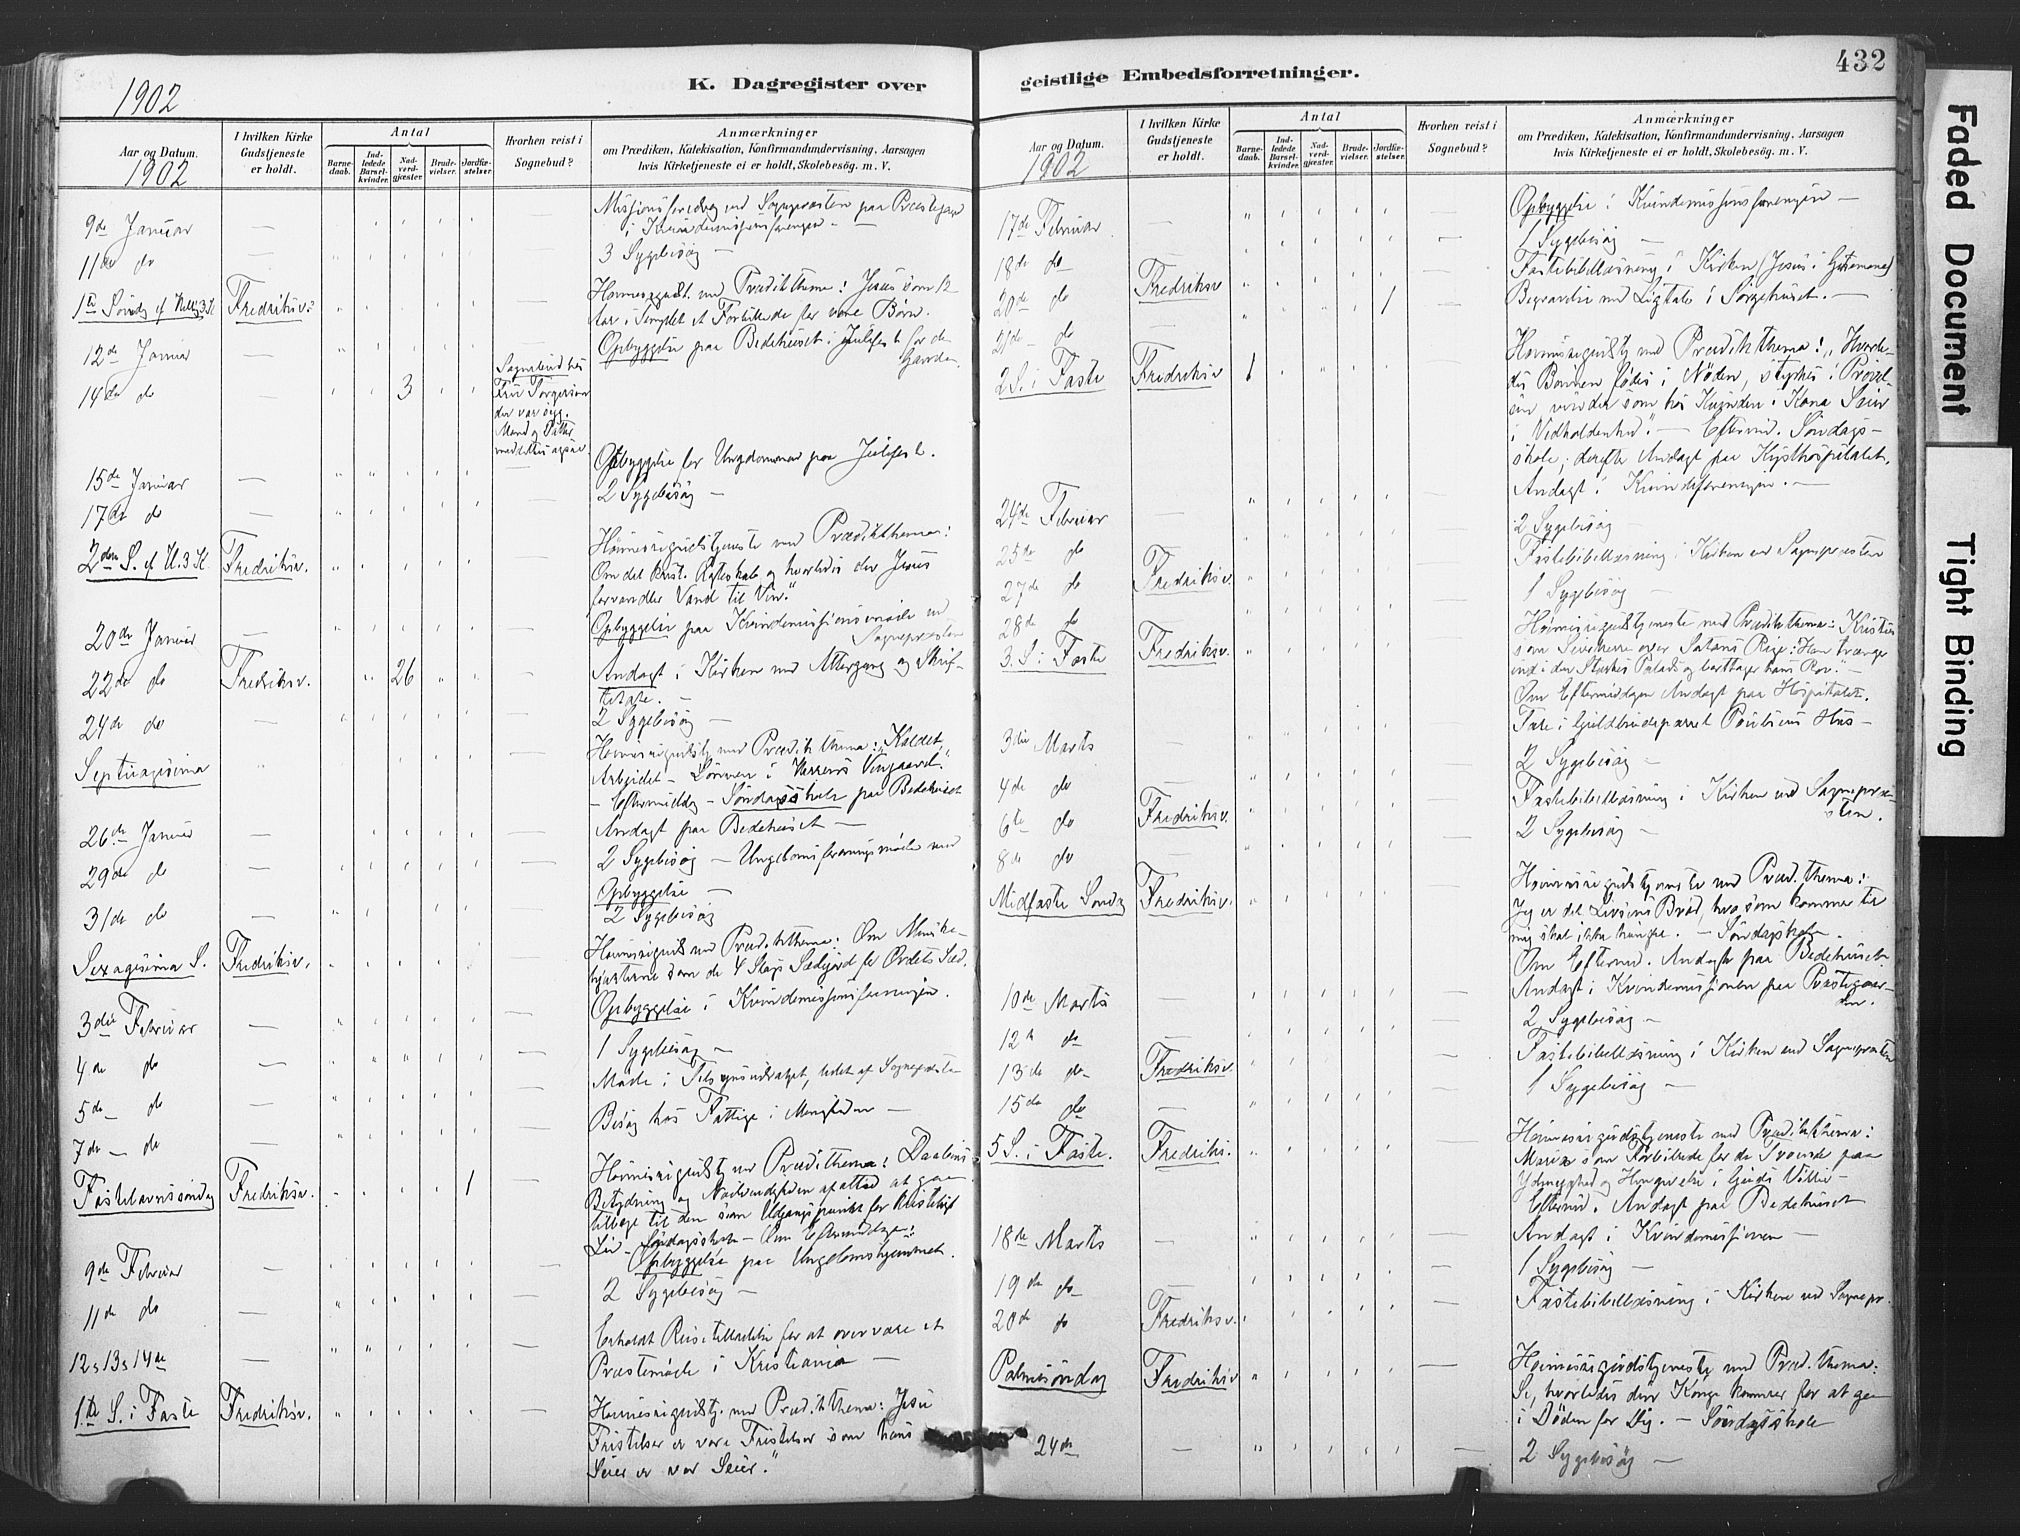 432
K. Dagregister over
geistlige Embedsforretninger.
1902
Aar og Datum.
1902
I hvilken Kirke
Gudstjeneste
er holdt.
Antal
Barne-
daab.
Ind-
ledede
Barsel-
kvinder.
Nad-
verd-
gjæster
Brude-
vielser.
Jordfæ-
stelser.
Hvorhen reist i
Sognebud?
Anmærkninger
om Prædiken, Katekisation, Konfirmandundervisning, Aarsagen
hvis Kirketjeneste ei er holdt, Skolebesøg. m. V.
9de Januar
Missionsforedrag ved Sognepræsten paa Præstegaar
i Kvindemissionsforeningen —
11de do
3 Sygebesøg —
Fredriksv.
Høimessegudst. med Prædikthema: Jesus som 12
Aar i Templet et Forbillede for vore Børn.
12de Januar
Opbyggelse paa Bedehuset i Julefest for de
Gamle
14de do
3
Sognebud hos
der var syg.
15de Januar
Opbyggelse for Ungdommen paa Julefest.
17de do
2 Sygebesøg —
2den S. ef H. 3 K.
Fredriksv.
Høimessegudstjeneste med Prædikthema:
Om det krist. Ægteskab og hvorledes der Jesus
forvandler Vand til Vin."
20de Januar
Opbyggelse paa Kvindemissionsmøde ved
Sognepræsten
22de do
Fredriksv.
26
Andagt i Kirken med Altergang og Skrif-
tetale. —
24de do
2 Sygebesøg —
Septuagesima
Høimessegudstj med Prædikthema: Kaldet,
Arbeidet – Lønnen i Herrens Vingaard."
– Eftermiddag – Søndagsskole paa Bedehuset
26de Januar
Andagt paa Bedehuset —
29de do
2 Sygebesøg — Ungdomsforeningsmøde med
Opbyggelse —
31de do
2 Sygebesøg
Sexagesima S.
Fredriksv.
Høimessegudst med Prædikthema: Om Menneske-
hjerterne som de 4 Slags Sædejord for Ordets Sæd.
3die Februar
Opbyggelse i Kvindemissionsforeningen.
4de do
1 Sygebesøg —
5de — do
Møde i Tilsynsudvalget, ledet af Sognepræsten
7de — do
Besøg hos Fattige i Menigheden —
Fastelavnssøndag
Fredriksv.
1
Høimessegudst med Prædikthema: Daabens
Betydning og Nødvendigheden af altid at gaa
tilbage til den som Udgangspunkt for Kristeligt
Liv – Søndagsskole – Om Eftermiddagen:
9de Februar
Opbyggelse paa Ungdomshjemmet.
11de do
2 Sygebesøg —
12, 13, 14de
Erholdt Reisetilladelse for at overvære et
Præstemøde i Kristiania —
1ste S. i Faste
Fredriksv.
Høimessegudstj. med Prædikthema: Jesu
Fristelser er vore Fristelser som hans
Seier er vor Seier."
Aar og Datum.
1902
I hvilken Kirke
Gudstjeneste
er holdt.
Antal
Barne-
daab.
Ind-
ledede
Barsel-
kvinder.
Nad-
verd-
gjæster
Brude-
vielser.
Jordfæ-
stelser.
Hvorhen reist i
Sognebud?
Anmærkninger
om Prædiken, Katekisation, Konfirmandundervisning, Aarsagen
hvis Kirketjeneste ei er holdt, Skolebesøg. m. V.
17de Februar
Opbyggelse i Kvindemissionsforeningen —
18de do
1 Sygebesøg —
20de do
Fredriksv
Fastebibellæsning i Kirken (Jesus i Getsemane)
21de — do
1
Begravelse med Ligtale i Sørgehuset. —
2 S. i Faste
Fredriksv
1
Høimessegudstj med Prædikthema: "Hvorle-
des Bønnen fødes i Nøden, styrkes i Prøvel-
sen, vinder som hos Kvinden i
i Vedholdenhed". — Eftermid. Søndags-
skole; derefter Andagt paa Kysthospitalet.
24de Februar
Andagt i Kvindeforeningen. —
25de do
2 Sygebesøg —
27de do
Fredriksv.
Fastebibellæsning i Kirken ved Sognepræsten
28de do
1 Sygebesøg —
3. S. i Faste
Fredriksv.
Høimessegudstjeneste med Prædikthema: Kristus
som Seierherre over Satans Rige: Han trænger
ind i den Stærkes Palads og borttager hans Rov." —
Om Eftermiddagen Andagt paa Hospitalet.
3die Marts
Tale i Guldbrudeparret Poulsens Hus —
4de do
2 Sygebesøg —
6te do
Fredriksv.
Fastebibellæsning i Kirken ved Sognepræ-
sten.
8de do
2 Sygebesøg —
Midfaste Søndag
Fredriksv.
Høimessegudstjeneste med Præd. thema:
Jeg er det Livsens Brød, hvo som kommer til
mig skal ikke hungre. — Søndagskole.
Om Eftermid. Andagt paa Bedehuset.
10de Marts
Andagt i Kvindemissionen paa Præstegaar-
den.
12te do
2 Sygebesøg —
13de do
Fredriksv.
Fastebibellæsning i Kirken ved Sognepræsten
15de do
1 Sygebesøg —
5 S. i Faste.
Fredriksv.
Høimessegudstjeneste med Prædikthema:
Maria som Forbillede for de Troende paa
Ydmyghed og Hengivelse i Guds Villie —
Eftermid. Andagt paa Bedehuset
18de Marts
Andagt i Kvindemissionen —
19de do
1 Sygebesøg —
20de do
Fredriksv.
Fastebibellæsning i Kirken ved Sognepr.
Palmesøndag
Fredriksv
Høimessegudstjeneste med Præd. thema:
Se, hvorledes din Konge kommer for at gaa
i Døden for Dig. — Søndagsskole
24de
2 Sygebesøg —
Faded Document
Tight Binding